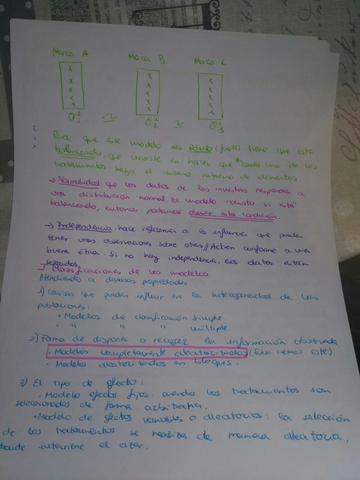 Marca A Marca B Marca C
x x x
σ²₁ σ²₂ σ²₃
Para que este modelo sea robusto (justo) tiene que estar
balanceado, que consiste en hacer que cada uno de los
tratamientos tenga el mismo número de elementos
→ Normalidad: que los datos de las muestras respondan a
una distribución normal. El modelo robusto si está
balanceado, entonces podemos
→ Independencia: hace referencia a la influencia que pueda
tener unas observaciones sobre otras/Action conforme a una
buena ética. Si no hay independencia, los datos están
sesgados.
→ Clasificaciones de los modelos
Atendiendo a diversas propiedades
1) Causas que pueden influir en la heterogeneidad de las
poblaciones:
• Modelos de clasificación simple
• " " " múltiple
2) Forma de disponer o recoger la información observada
• Modelos completamente aleatorizados (Solo vemos este)
• Modelos aleatorizados en bloques.
3) El tipo de efecto:
• Modelo efectos fijos: cuando los tratamientos son
seleccionados de forma arbitraria.
• Modelo de efectos variables o aleatorios: la selección
de los tratamientos se realiza de manera aleatoria,
donde interviene el azar.